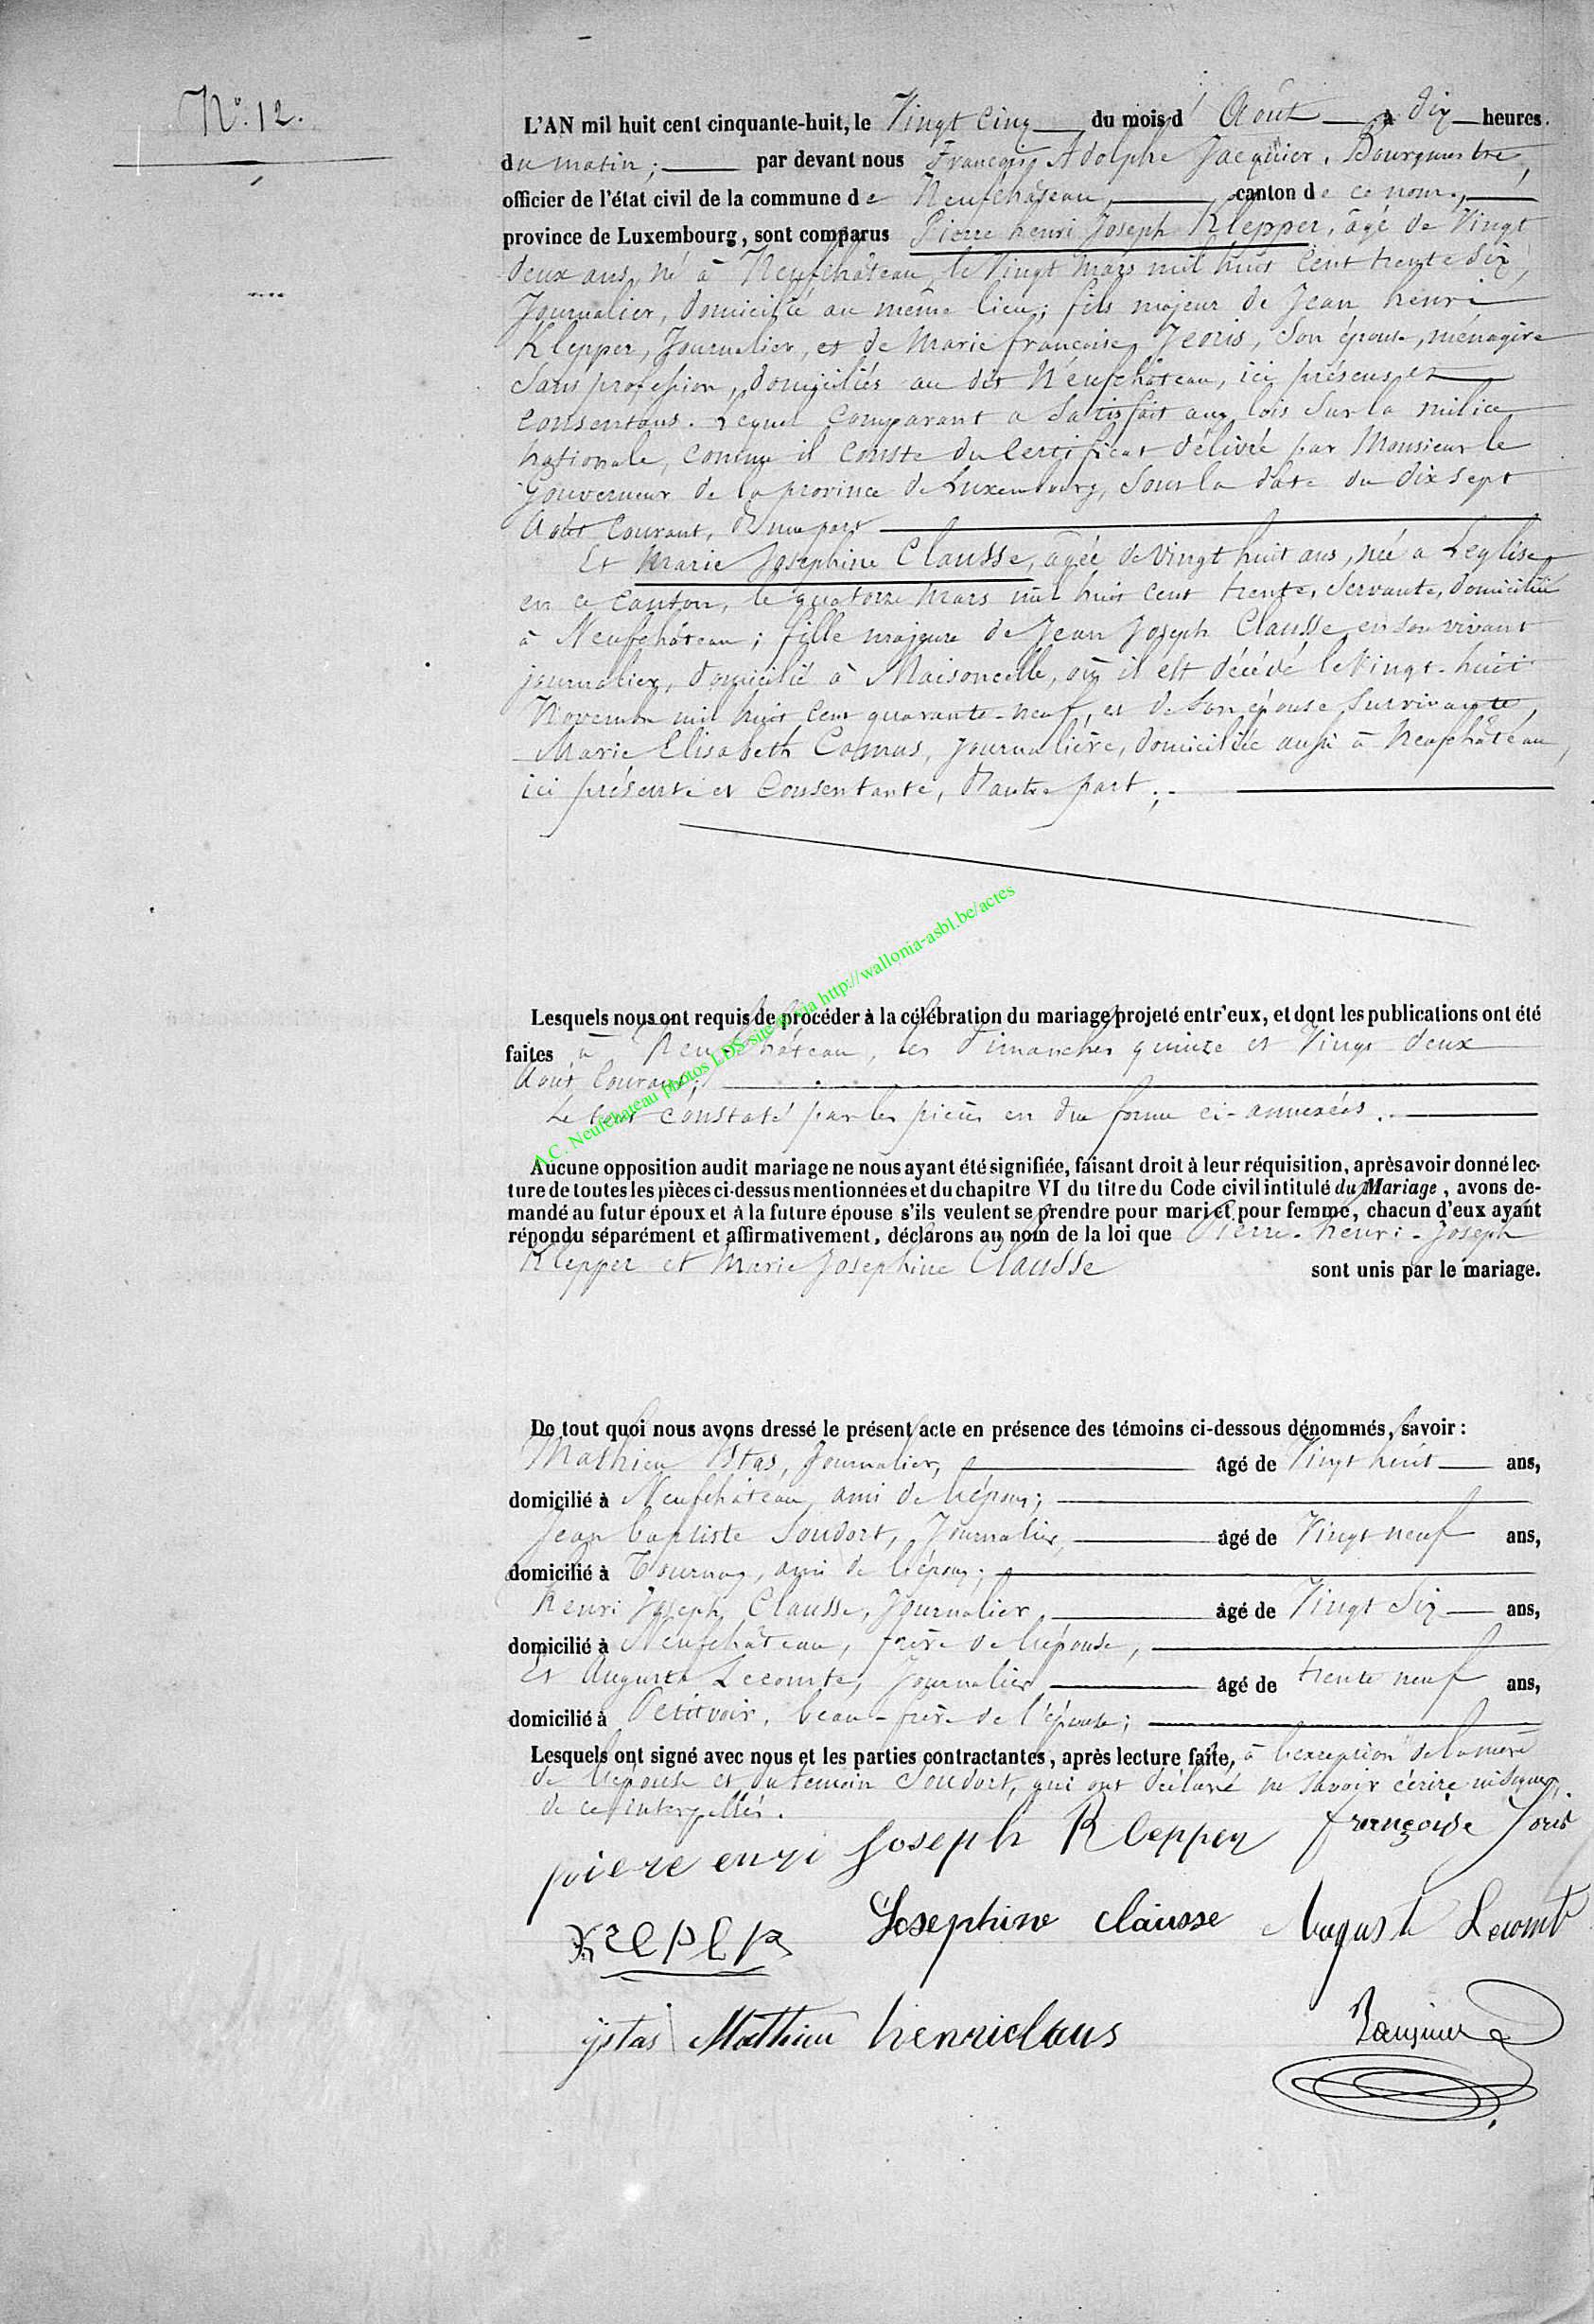 N°. 12.
L'AN mil huit cent cinquante-huit, le Vingt Cinq du mois d' Août à dix heures
du matin; par devant nous François Adolphe Jacquier, Bourgmestre,
officier de l'état civil de la commune de Neufchâteau, canton de ce nom,
province de Luxembourg, sont comparus Pierre henri Joseph Klepper, âgé de Vingt
deux ans, né à Neufchâteau, le Vingt mars mil huit Cent trente six,
Journalier, domicilié au même lieu; fils majeur de Jean henri
Klepper, Journalier, et de Marie françoise Jeoris, Son épouse, ménagère
Sans profession, domiciliés au dit Neufchâteau, ici présens et
Consentans. Lequel Comparant a Satisfait aux lois Sur la milice
nationale, Comme il Conste du Certificat délivré par Monsieur le
Gouverneur de la province de Luxembourg, Sous la date du dix Sept
Août Courant, d'une part
Et Marie Josephine Clausse, âgée de vingt huit ans, née a Leglise,
en ce Canton, le quatorze Mars mil huit cent trente, Servante, domiciliée
à Neufchâteau; fille majeure de Jean Joseph Clausse, en son vivant
journalier, domicilié à Maisoncelle, où il est décédé le Vingt-huit
Novembre mil huit Cent quarante-neuf, et de Son épouse Survivante,
Marie Elisabeth Camus, Journalière, domiciliée aussi à Neufchâteau,
ici présente et Consentante, d'autre part;
A.C. Neufchateau photos LDS-site @ via http://wallonia-asbl.be/actes
Lesquels nous ont requis de procéder à la célébration du mariage projeté entr'eux, et dont les publications ont été
faites à Neufchâteau, les Dimanches quinze et Vingt deux
Août Courant;
Le tout Constaté par les pièces en due forme ci-annexées.
Aucune opposition audit mariage ne nous ayant été signifiée, faisant droit à leur réquisition, après avoir donné lec-
ture de toutes les pièces ci-dessus mentionnées et du chapitre VI du titre du Code civil intitulé du Mariage, avons de-
mandé au futur époux et à la future épouse s'ils veulent se prendre pour mari et pour femme, chacun d'eux ayant
répondu séparément et affirmativement, déclarons au nom de la loi que Pierre-henri-Joseph
Klepper et Marie Josephine Clausse sont unis par le mariage.
De tout quoi nous avons dressé le présent acte en présence des témoins ci-dessous dénommés, savoir:
Mathieu Istas, Journalier, âgé de Vingt huit ans,
domicilié à Neufchâteau, ami de l'époux;
Jean baptiste Soudort, Journalier, âgé de Vingt neuf ans,
domicilié à Tournay, ami de l'époux;
henri Joseph Clausse, Journalier, âgé de Vingt Six ans,
domicilié à Neufchâteau, frère de l'épouse,
Et Auguste Lecomte, Journalier, âgé de trente neuf ans,
domicilié à Petitvoir, beau-frère de l'épouse;
Lesquels ont signé avec nous et les parties contractantes, après lecture faite, à l'exception de la mère
de l'épouse et du temoin Soudort, qui ont déclaré ne Savoir écrire ni Signer,
de ce interpellés.
piere enri Joseph Klepper françoise Joris
Josephine clausse August Lecomt
ystas Mathieu henriclaus Jacquier